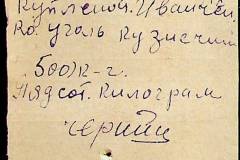 Купленой. Иванчен
ко. Уголь Кузнечний
500) к-г.
Пядсот. Килограм